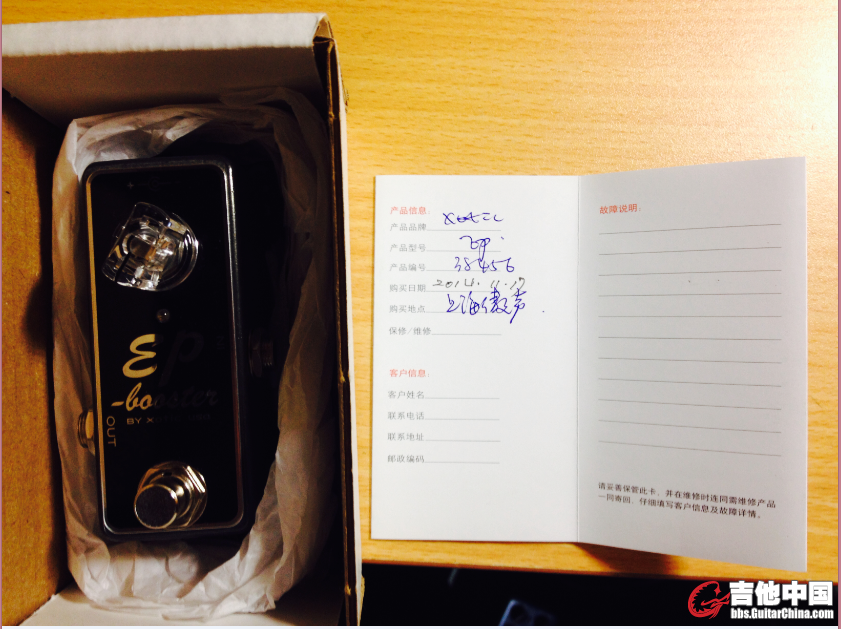 Ep
-booster
BY X
OUT
产品信息:
产品品牌 Xotic
产品型号 Ep
产品编号 38456
购买日期 2014.11.17
购买地点 上海傲声
保修/维修
客户信息:
客户姓名
联系电话
联系地址
邮政编码
故障说明:
请妥善保管此卡，并在维修时连同需维修产品
一同寄回，仔细填写客户信息及故障详情。
吉他中国
bbs.GuitarChina.com